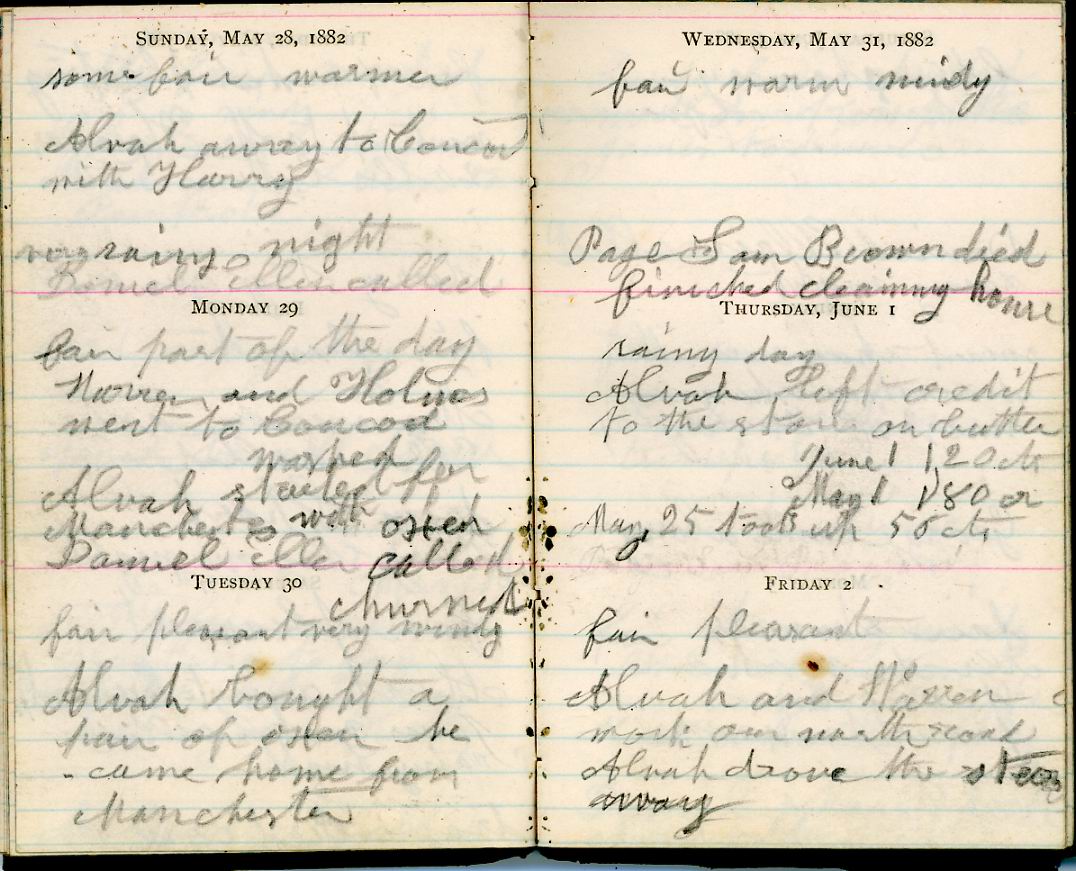 SUNDAY, MAY 28, 1882
some fair warmer
Alvah away to Concord
with Harry
rainy night
Daniel Ellen called
MONDAY 29
fair part of the day
Warren and Holmes
went to Concod
washed
Alvah started for
Manchester with oxen
Daniel Ellen called
TUESDAY 30
churned
fair pleasant very windy
Alvah bought a
pair of oxen he
came home from
Manchester
WEDNESDAY, MAY 31, 1882
fair warm windy
Page Sam Brown died
finished cleaning house
THURSDAY, JUNE 1
rainy day
Alvah left credit
to the store on butter
June 1 120 cts
May 1 180 cr
May 25 took up 50 cts
FRIDAY 2
fair pleasant
Alvah and Warren
work our north road
Alvah drove the steers
away